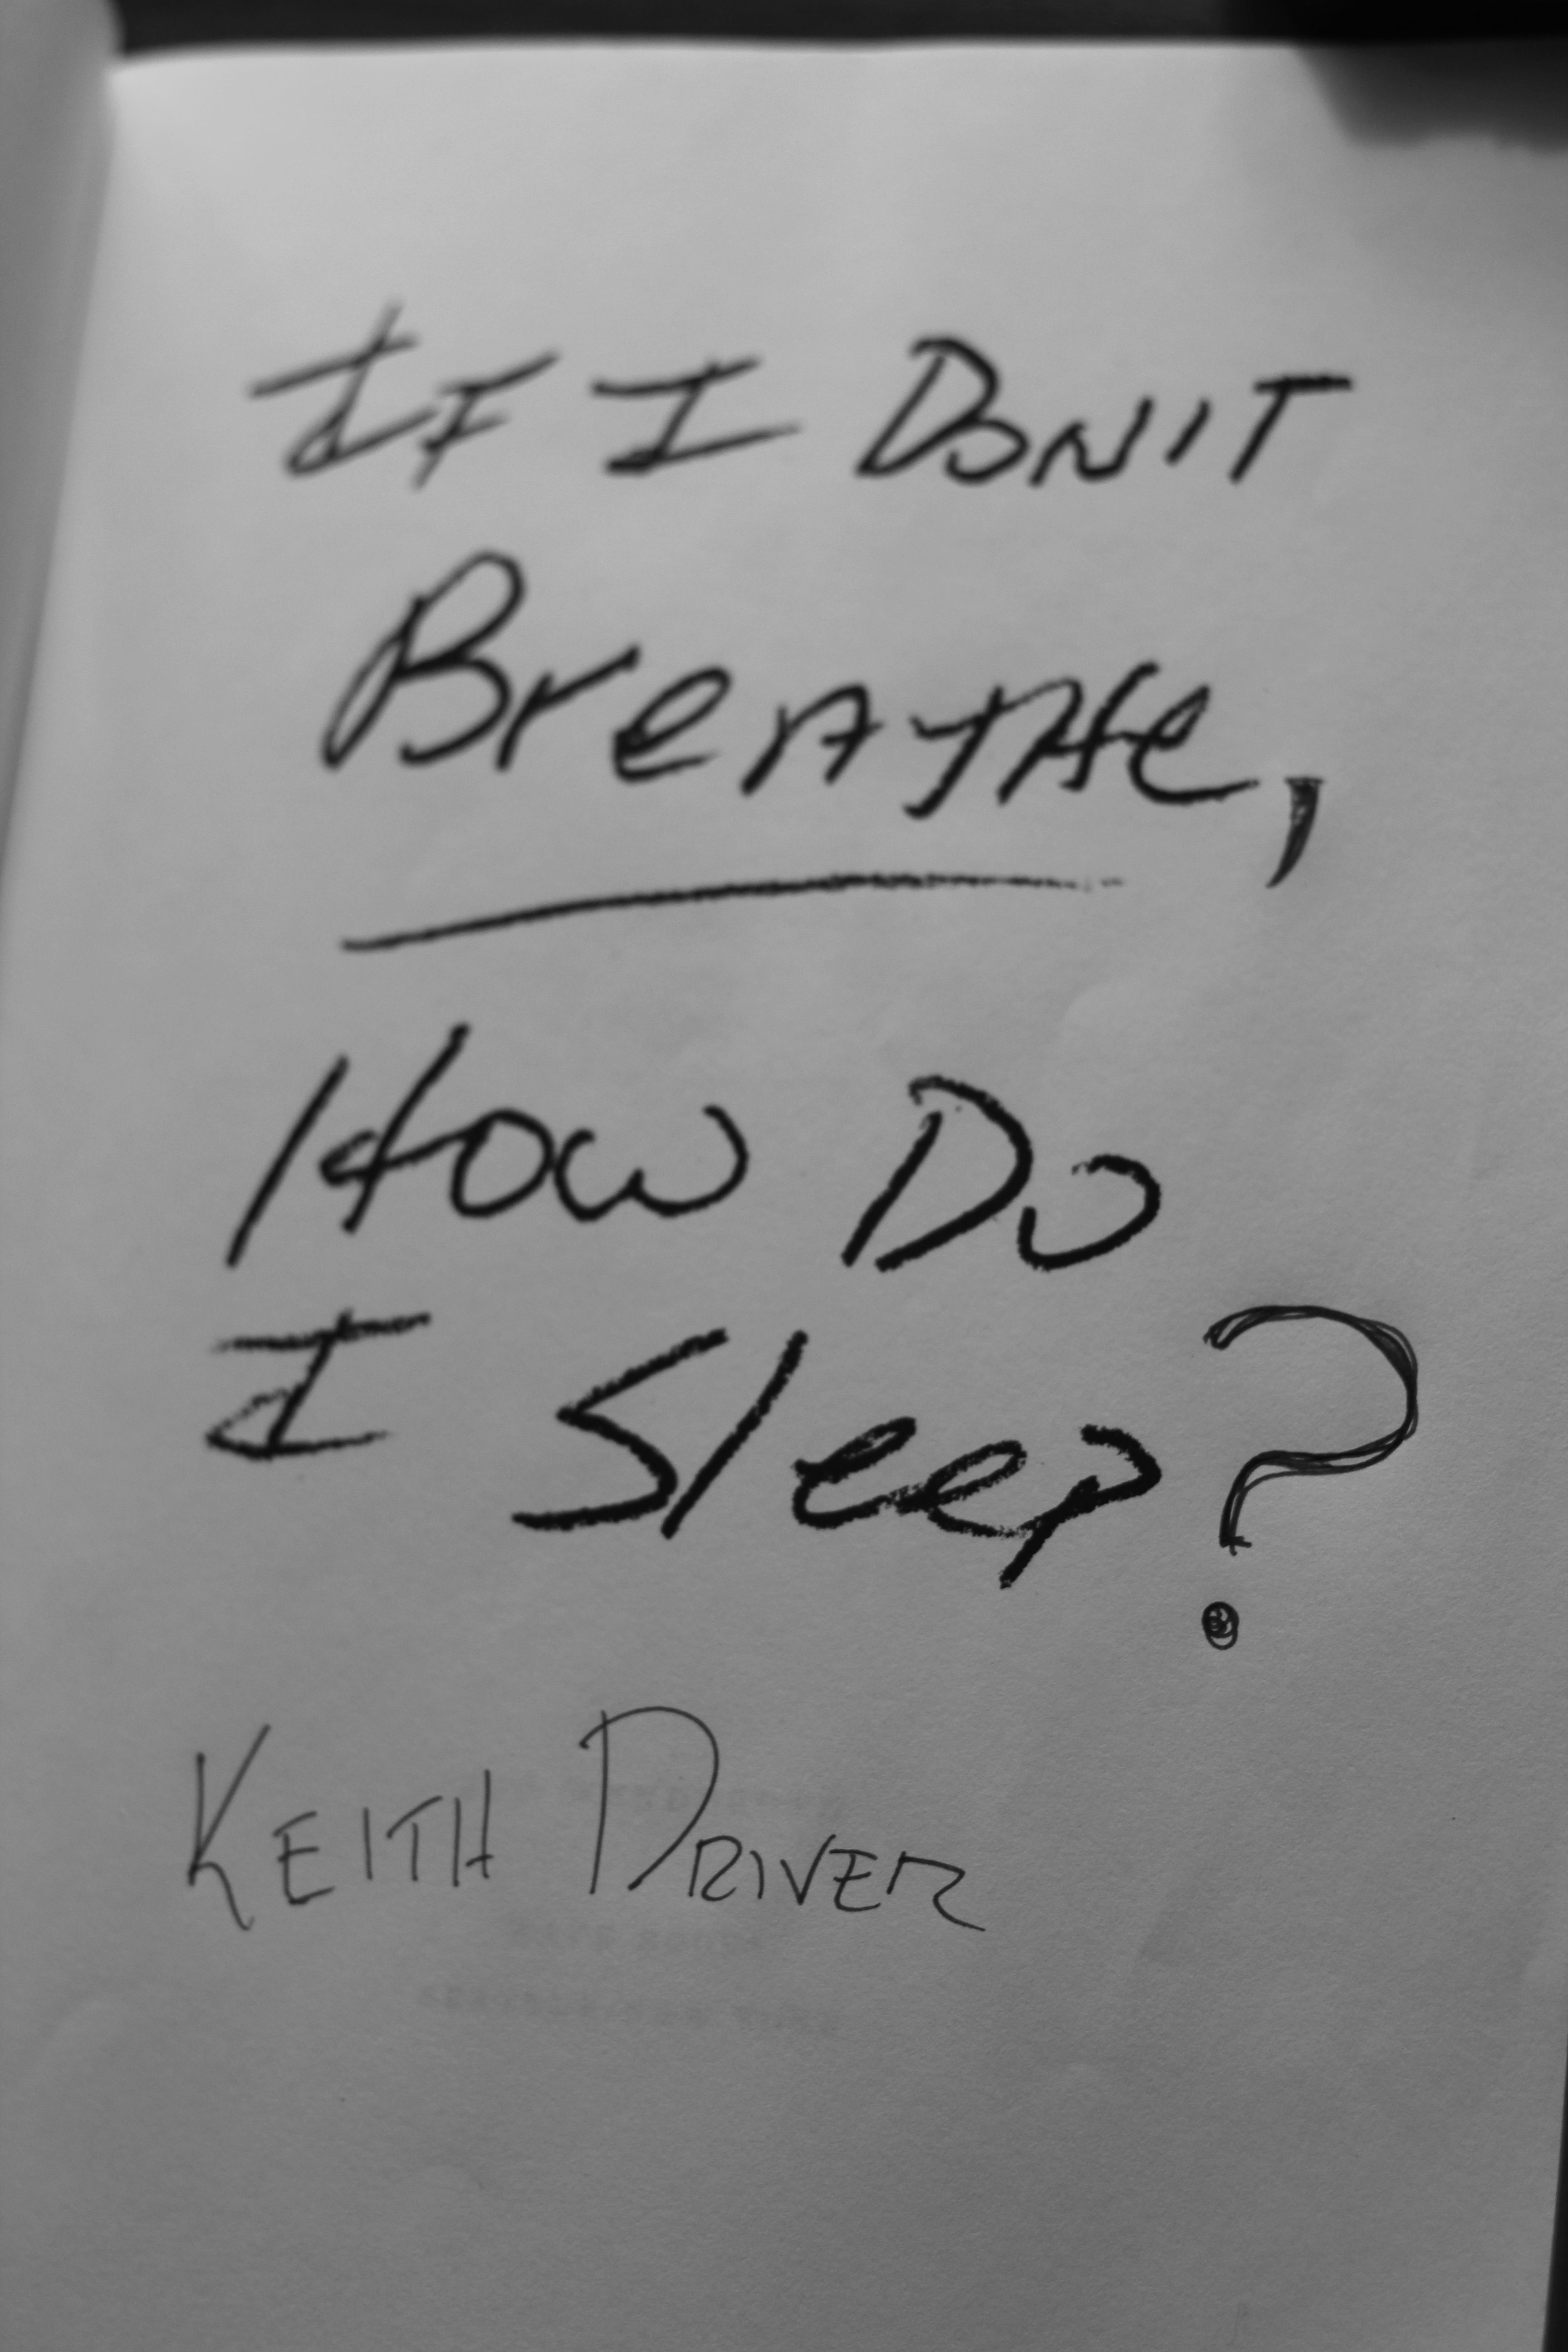 If I Don't
Breathe,
How Do
I Sleep?
KEITH DRIVER